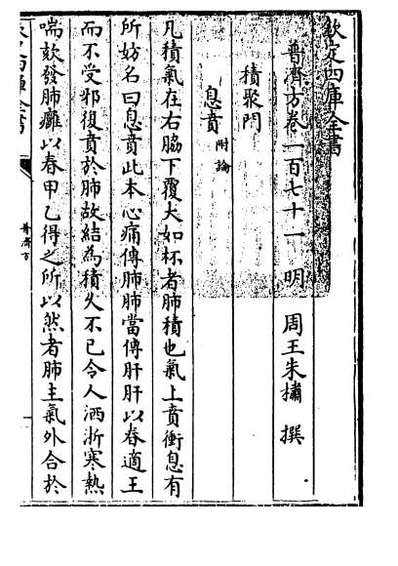 欽定四庫全書
普濟方卷一百七十一 明 周王朱橚 撰
積聚門
息賁附論
凡積氣在右脇下覆大如杯者肺積也氣上賁衝息有
所妨名曰息賁此本心痛傳肺肺當傳肝肝以春適王
而不受邪復賁於肺故結為積久不已令人洒淅寒熱
喘欬發肺癰以春甲乙得之所以然者肺主氣外合於
欽定四庫全書
普濟方
一